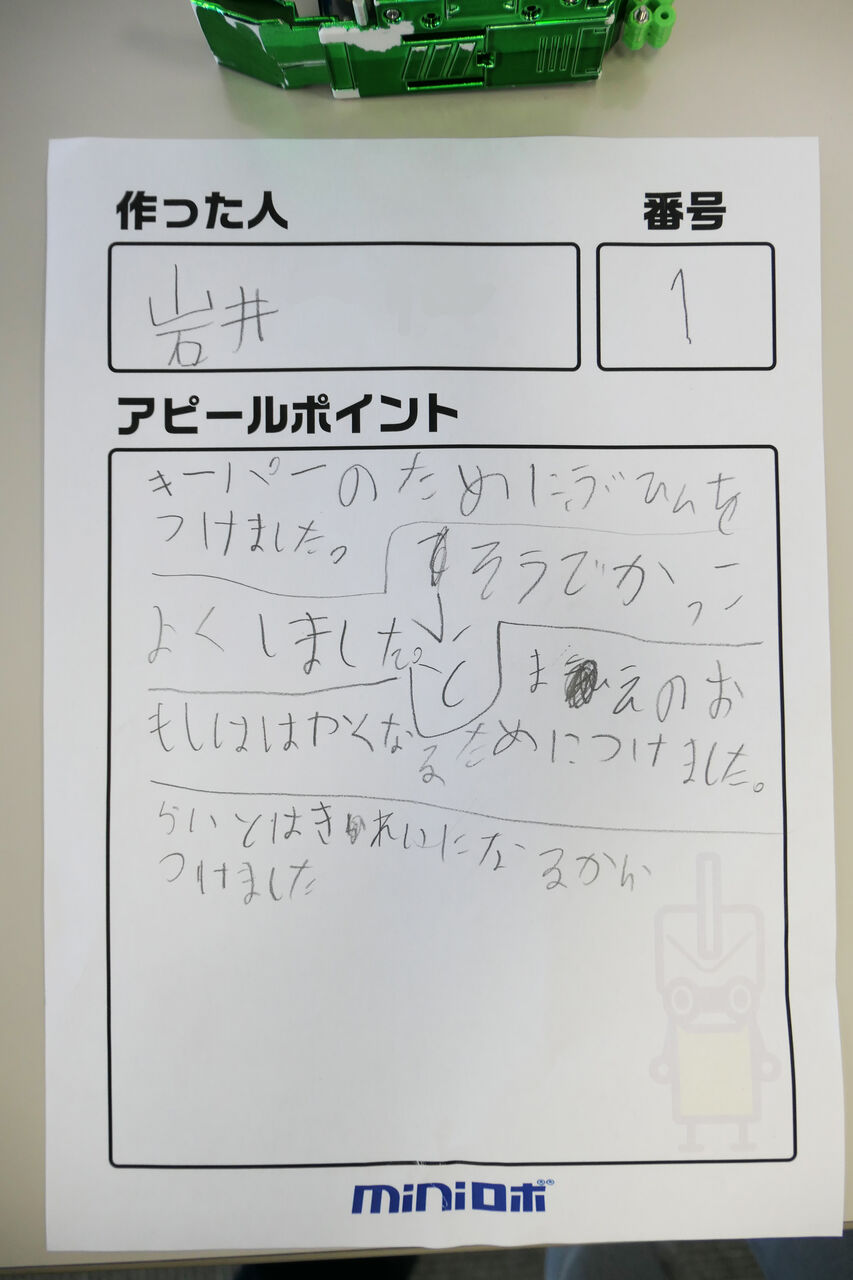 作った人
番号
岩井
1
アピールポイント
キーパーのために
つけました。
そうでかっこ
よくしました。
まえのお
もしははやくなるためにつけました。
らいとはきれいになるから
つけました
miniロボ